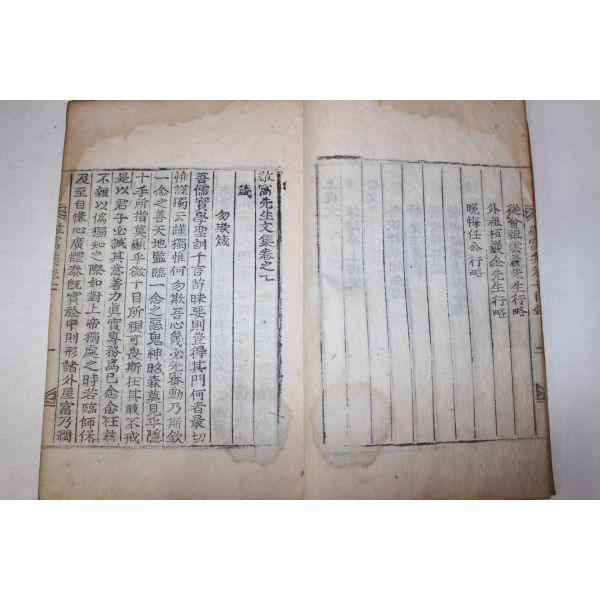 從曾祖雲叢先生行略
外祖栢巖金先生行略
晚悔任公行略
敬窩先生文集卷之七
箴
勿欺箴
吾儒實學聖訓千言苟昧要則豈得其門何者最切
惟謹獨云謹獨惟何勿欺吾心幾必先審動乃斯欽
一念之善天地監臨一念之惡鬼神昭森莫見乎隱
十手所指莫顯乎微十目所視可畏斯在其敢不戒
是以君子必誠其意善力眞實專務爲己念念在玆
不雜以僞獨知之際如對上帝獨處之時若臨師保
及至自慊心廣體泰旣實於中則形諸外屋富乃潤